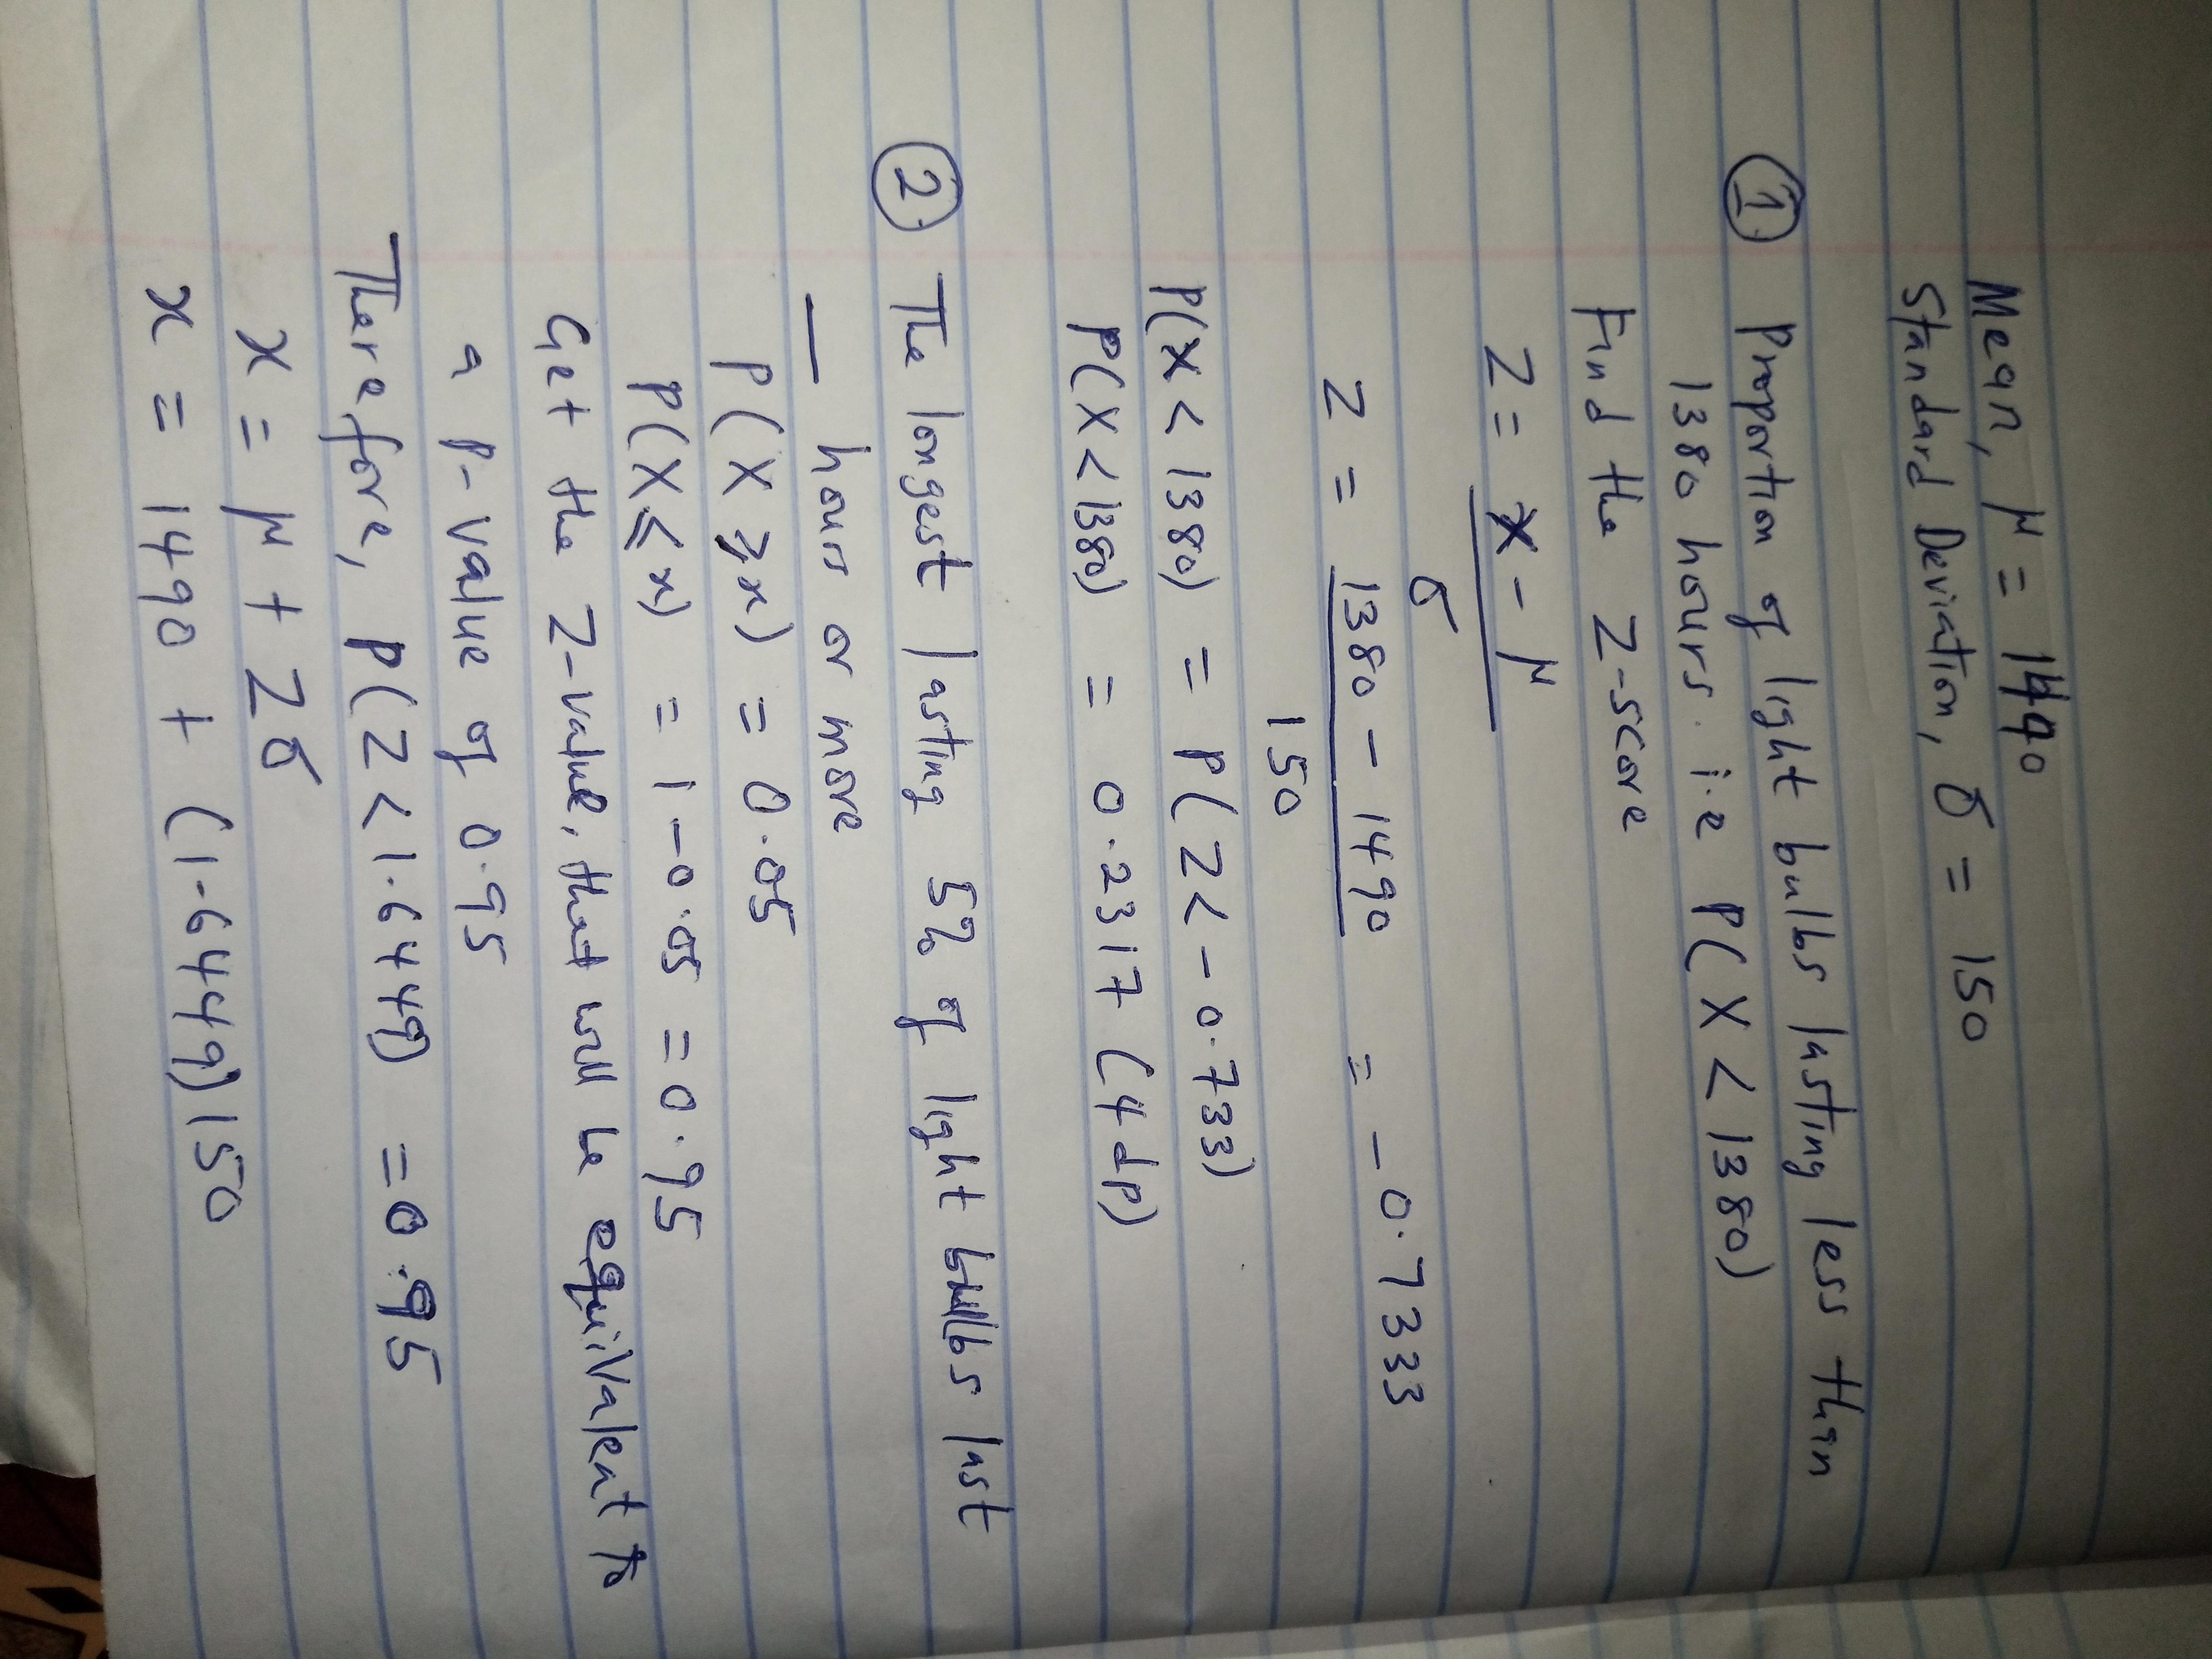 Mean, μ = 1490
Standard Deviation, σ = 150
① Proportion of light bulbs lasting less than
1380 hours. i.e P(X < 1380)
Find the Z-score
Z = X - μ
σ
Z = 1380 - 1490 = -0.7333
150
P(X < 1380) = P(Z < -0.733)
P(X < 1380) = 0.2317 (4dp)
② The longest lasting 5% of light bulbs last
— hours or more
P(X ⩾ x) = 0.05
P(X ≤ x) = 1 - 0.05 = 0.95
Get the Z-value, that will be equivalent to
a P-value of 0.95
Therefore, P(Z < 1.6449) = 0.95
x = μ + Zσ
x = 1490 + (1.6449)150